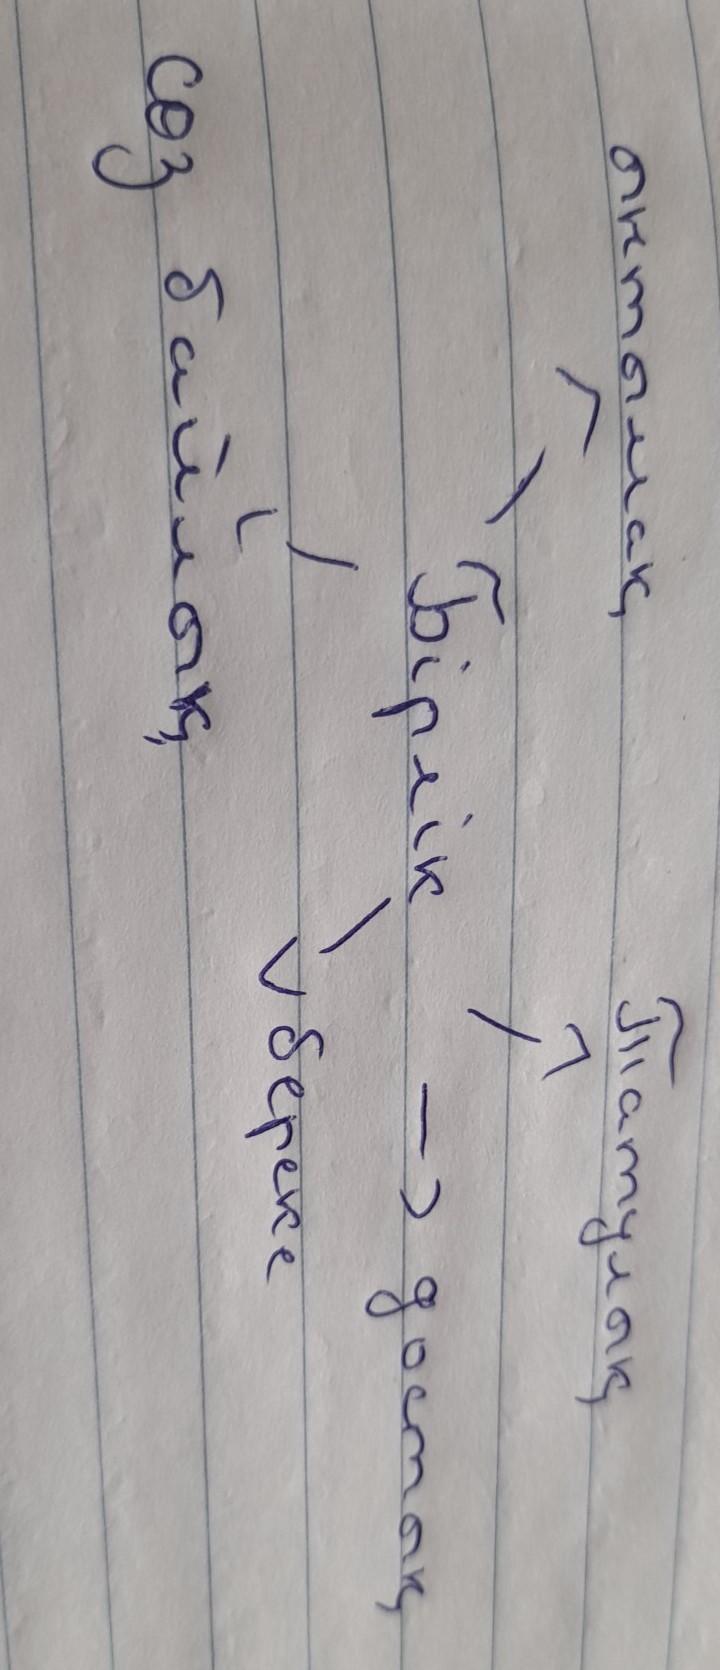 ынтымақ Татулық
Бірлік → достық
береке
сөз байлық